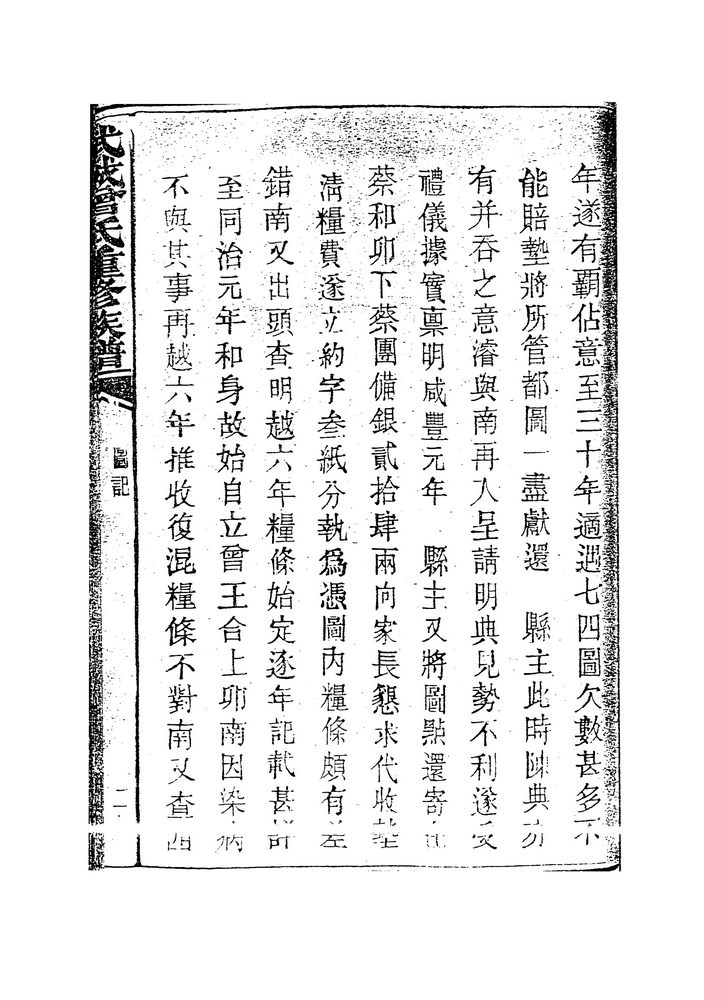 年遂有霸佔意至三十年適遇七四圖欠數甚多不
能賠墊將所管都圖一盡獻還　縣主此時陳典
有并吞之意濬與南再入呈請明典見勢不利遂
禮儀據實稟明咸豐元年　縣主又將圖點還寄
蔡和卯下蔡團備銀貳拾肆兩向家長懇求代收墊
淸糧費遂立約字叁紙分執爲憑圖內糧條頗有差
錯南又出頭查明越六年糧條始定逐年記載甚詳
至同治元年和身故始自立曾王合上卯南因染病
不與其事再越六年推收復混糧條不對南又查
武城曾氏重修族譜
圖記